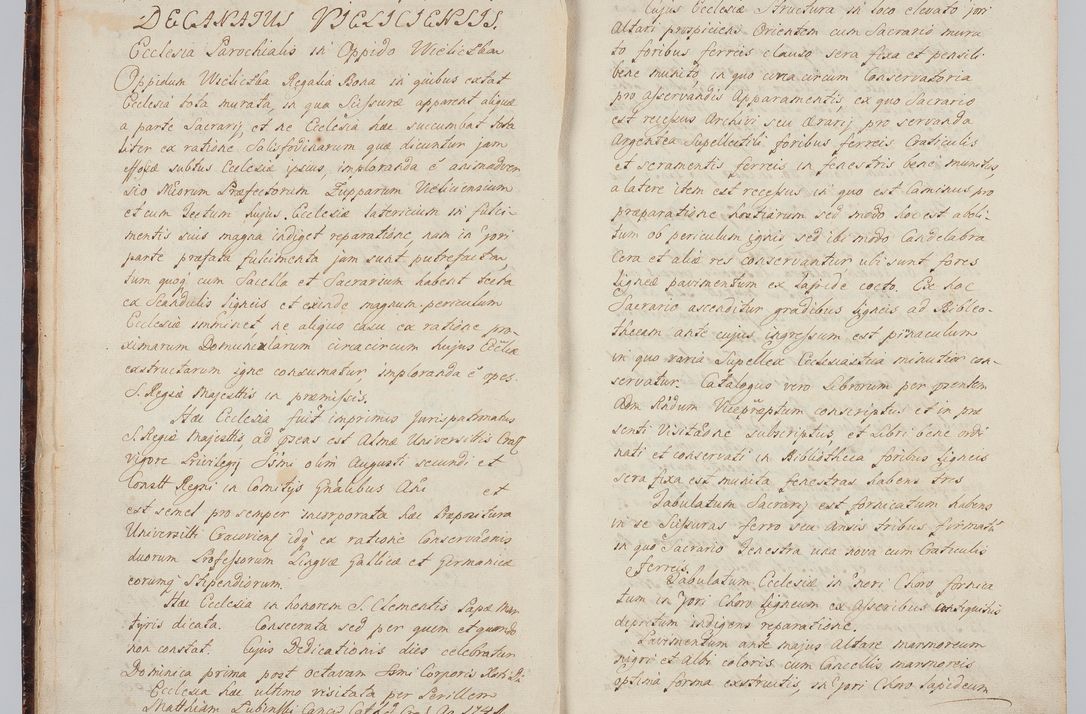 DECANATUS VIELICIENSIS.
Ecclesia Parochialis in Oppido Wieliczka
Oppidum Wieliczka Regalia Bona in quibus extat
Ecclesia tota murata, in qua Scissuræ apparent aliquæ
a parte Sacrarij, et ne Ecclesia hæc succumbat tota
liter ex ratione Salisfodinarum quæ dicuntur jam
effossæ subtus Ecclesia ipsius, imploranda ē animadver
sio Præfectorum Zupparum Vieliciencium
et cum Tectum hujus Ecclesiæ latericium in fulci-
mentis suis magna indiget reparatione, nam in
parte præfata fulcimenta jam sunt putrefacta
tum quoq cum Sacella et Sacrarium habent tecta
ex Scandulis ligneis et exinde magnum periculum
Ecclesiæ imminet ne aliquo casu ex ratione pro-
ximarum Domuncularum circacircum hujus Eccliæ
exstructarum igne consumatur, imploranda ē opes
S. Regiæ Majestis in præmissis.
Hæc Ecclesia fuit imprimis Jurispatronatus
S. Regiæ Majestis ad præns est Almæ Universitis
vigore Privilegij olim Augusti secundi et
Regni in Comitijs Gnalibus Ani et
est semel pro semper incorporata hæc Præpositura
idq ex ratione Conservaōnis
duorum Professorum Linguæ Gallicæ et Germanicæ
eorumq Stipendiorum.
Hæc Ecclesia in honorem S. Clementis Papæ Mar
tyris dicata. Consecrata sed per quem et quando
non constat. Cujus Dedicationis dies celebratur
Dominica prima post octavam Corporis
Ecclesia hæc ultimo visitata per Perillem
Matthiam Lubinski
Cujus Ecclesiæ Structura in loco elevato
Altari prospiciens Orientem cum Sacrario mura
to foribus ferreis clauso sera fixa et pensili
bene munito, in quo circacircum Conservatoria
pro asservandis Apparamentis, ex quo Sacrario
est recessus Archivi seu Ærarij pro servanda
Argentea Supellectili foribus ferreis Craticulis
et seramentis ferreis in fenestris bene munitus
a latere item est recessus in quo est Caminus pro
præparatione hostiarum sed modo hoc est aboli-
tum ob periculum ignis sed ibi modo Candelabra
Cera et aliæ res conservantur ubi sunt fores
ligneæ pavimentum ex lapide cocto. Ex hoc
Sacrario ascenditur gradibus ligneis ad Biblio-
thecam ante cujus ingressum est pinaculum
in quo varia Supellex Ecclesiastica minutior con-
servatur. Catalogus vero Librorum per prentem
Adm Rndum conscriptus et in præ
senti Visitaōne subscriptus, et Libri bene ordi
nati et conservati in Bibliotheca foribus ligneis
sera fixa est munita fenestras habens tres
Tabulatum Sacrarij est fornicatum habens
in se Scissuras ferro seu Ansis tribus
in quo Sacrario Fenestra una nova cum Craticulis
ferreis.
Tabulatum Ecclesiæ in Choro fornica
tum in Choro ligneum ex Asseribus
depictum indigens reparatione.
Pavimentum ante majus Altare marmoreum
nigri et albi coloris cum Cancellis marmoreis
optima forma exstructis, in Choro lapideum